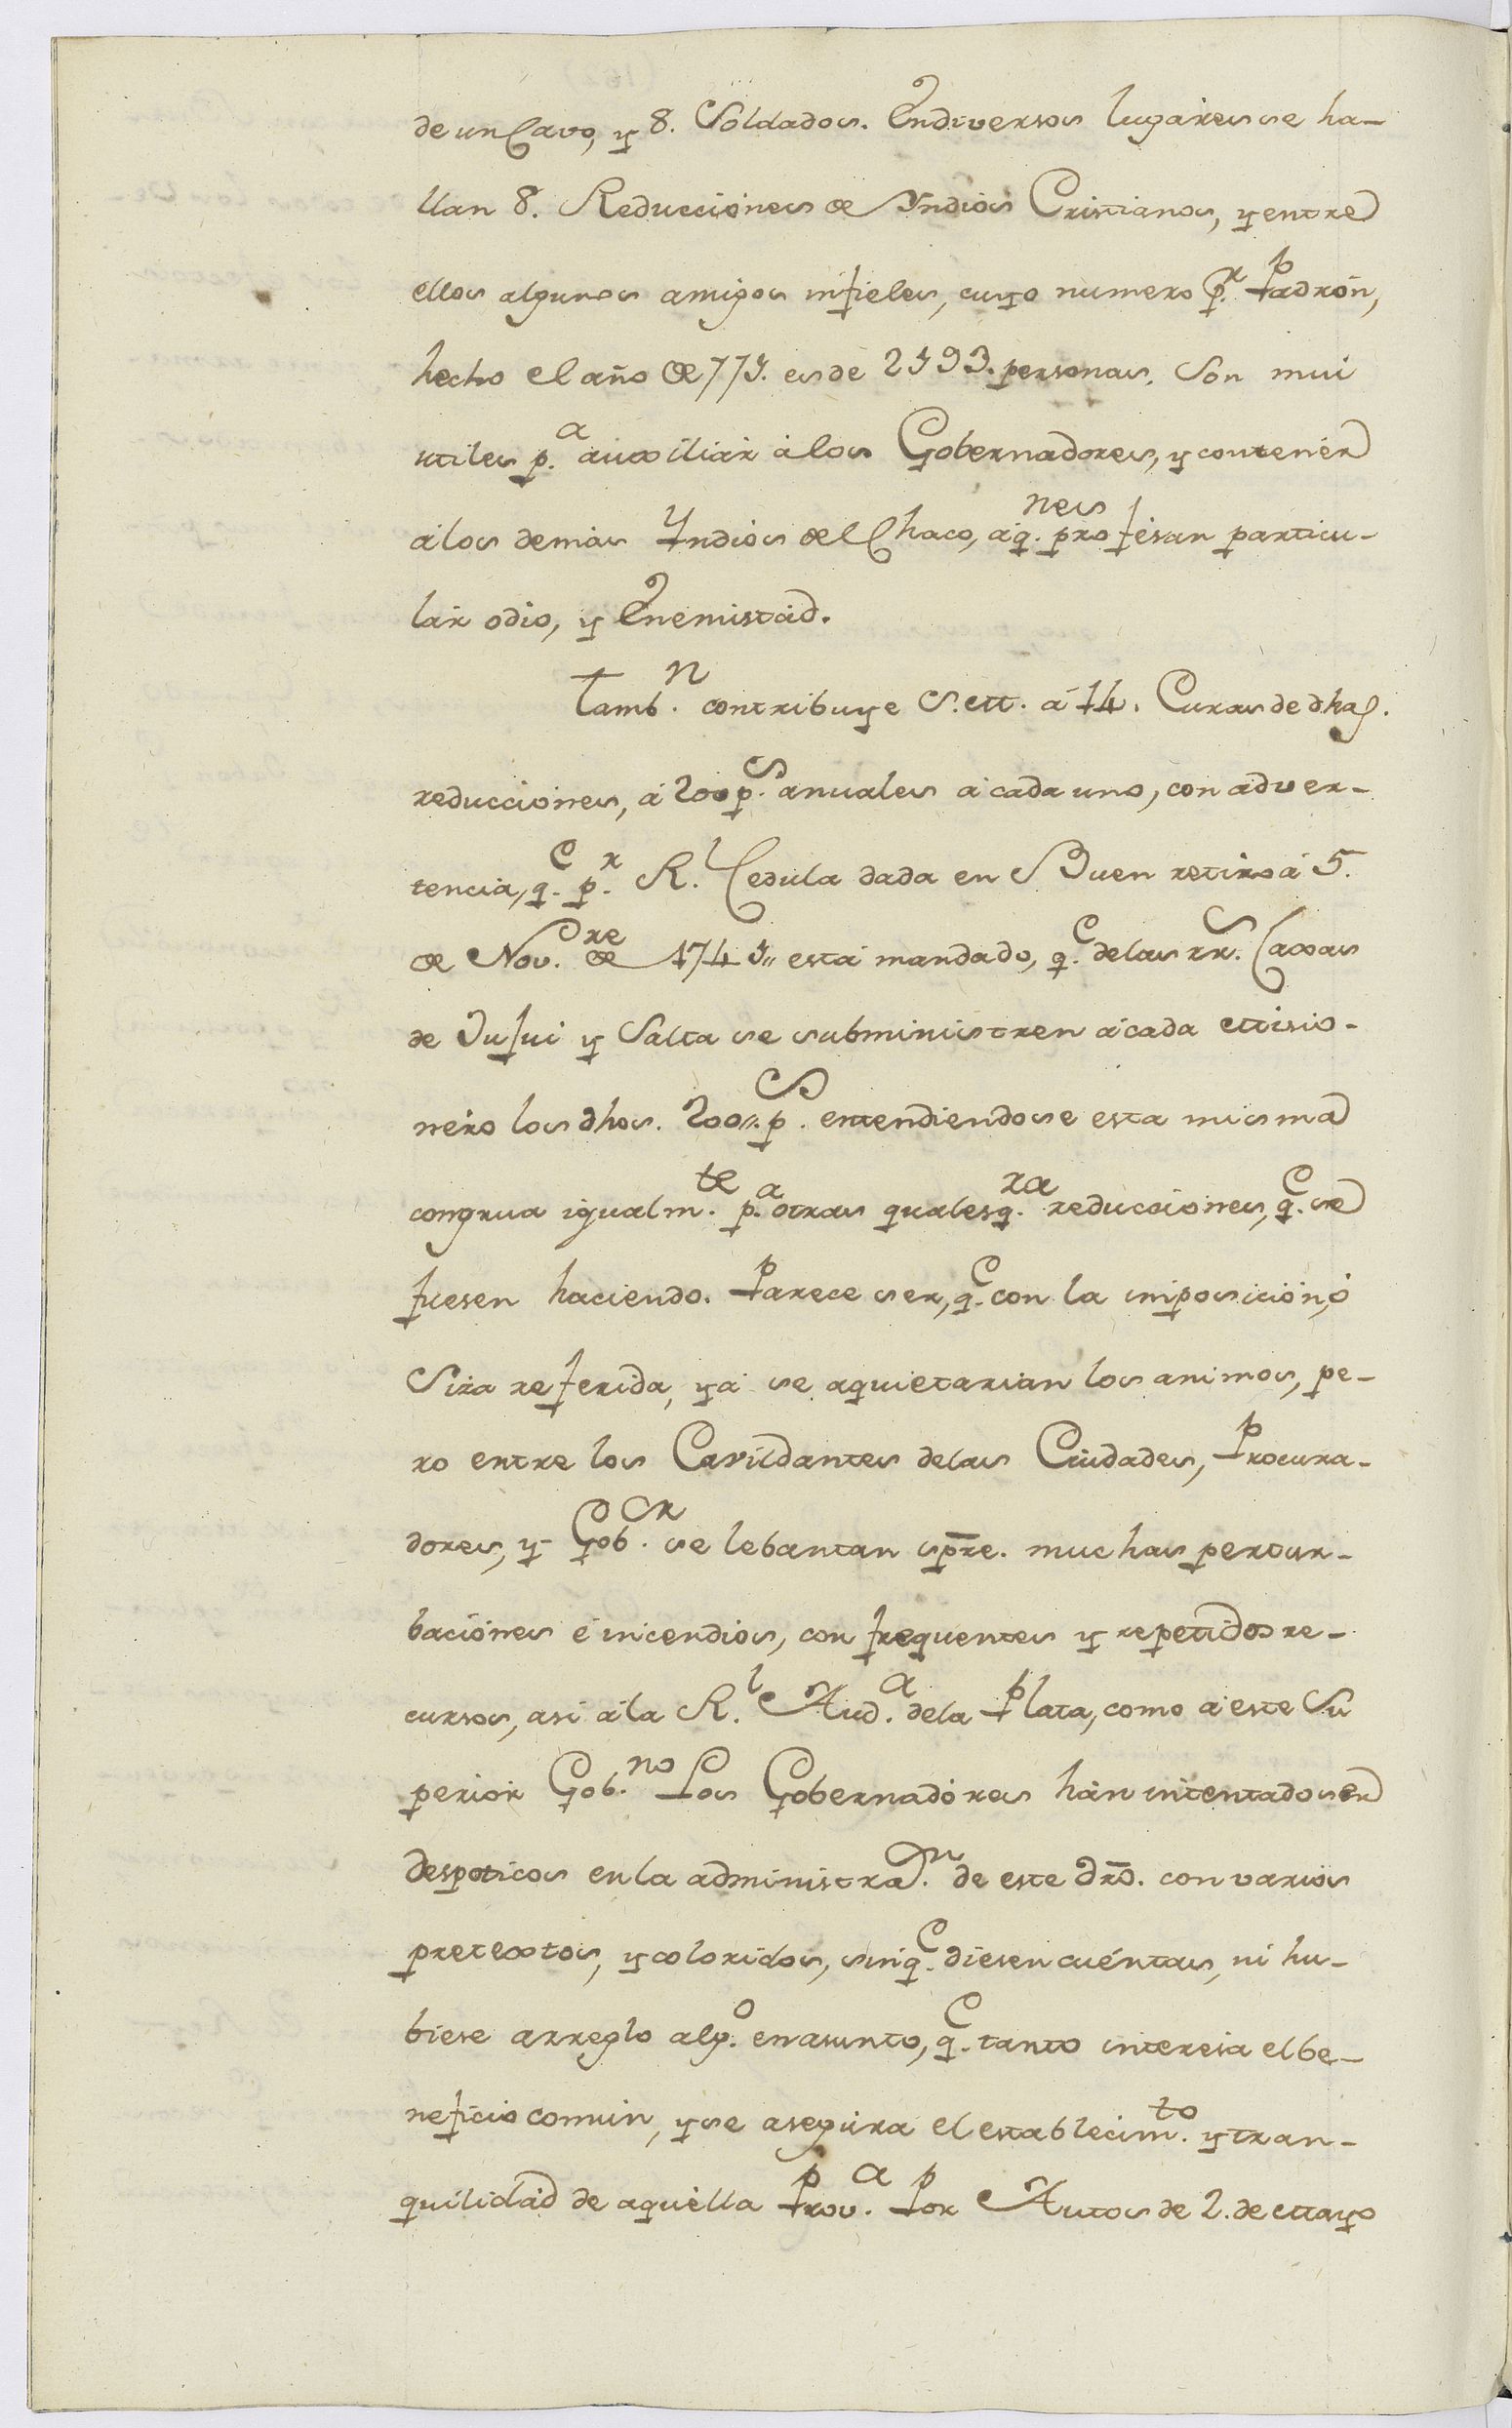 de un Cavo, y 8. Soldados. En diversos lugares se ha-
llan 8. Reducciones de Yndios Cristianos, y entre
ellos algunos amigos infieles, cuyo numero p.r Padrón,
hecho el año de 775. es de 2593. personas. Son mui
utiles p.a auxiliár á los Gobernadores, y contenér
á los demás Yndios del Chaco, á q.nes profesan particu-
lár odio, y Enemistád.
Tamb.n contribuye S.M. á 14. Curas de dhas.
reducciones, á 200 p.s anuales á cada uno, con adver-
tencia, q.e p.r R.l Cedula dada en Buen retiro á 5.
de Nov.re de 1745,, está mandado, q.e de las rr.s Caxas
de Jujui y Salta se subministren á cada Misio-
nero los dhos. 200,, p.s entendiendose esta misma
congrua igualm.te p.a otras qualesq.ra reducciones, q.e se
fuesen haciendo. Parece ser, q.e con la imposición, ó
Siza referida, yá se aquietarian los animos, pe-
ro entre los Cavildantes de las Ciudades, Procura-
dores, y Gob.er se lebantan spre. muchas pertur-
baciones é incendios, con frequentes y repetidos re-
cursos, asi á la R.l Aud.a de la Plata, como á este Su
perior Gob.no Los Gobernadores hán intentado ser
despoticos en la administra.on de este dro. con varios
pretextos, y coloridos, sin q.e diesen cuéntas, ni hu-
biese arreglo alg.o en asunto, q.e tanto interesa el be-
neficio comun, y se asegura el establecim.to y tran-
quilidád de aquella Prov.a Por Autos de 2. de Mayo